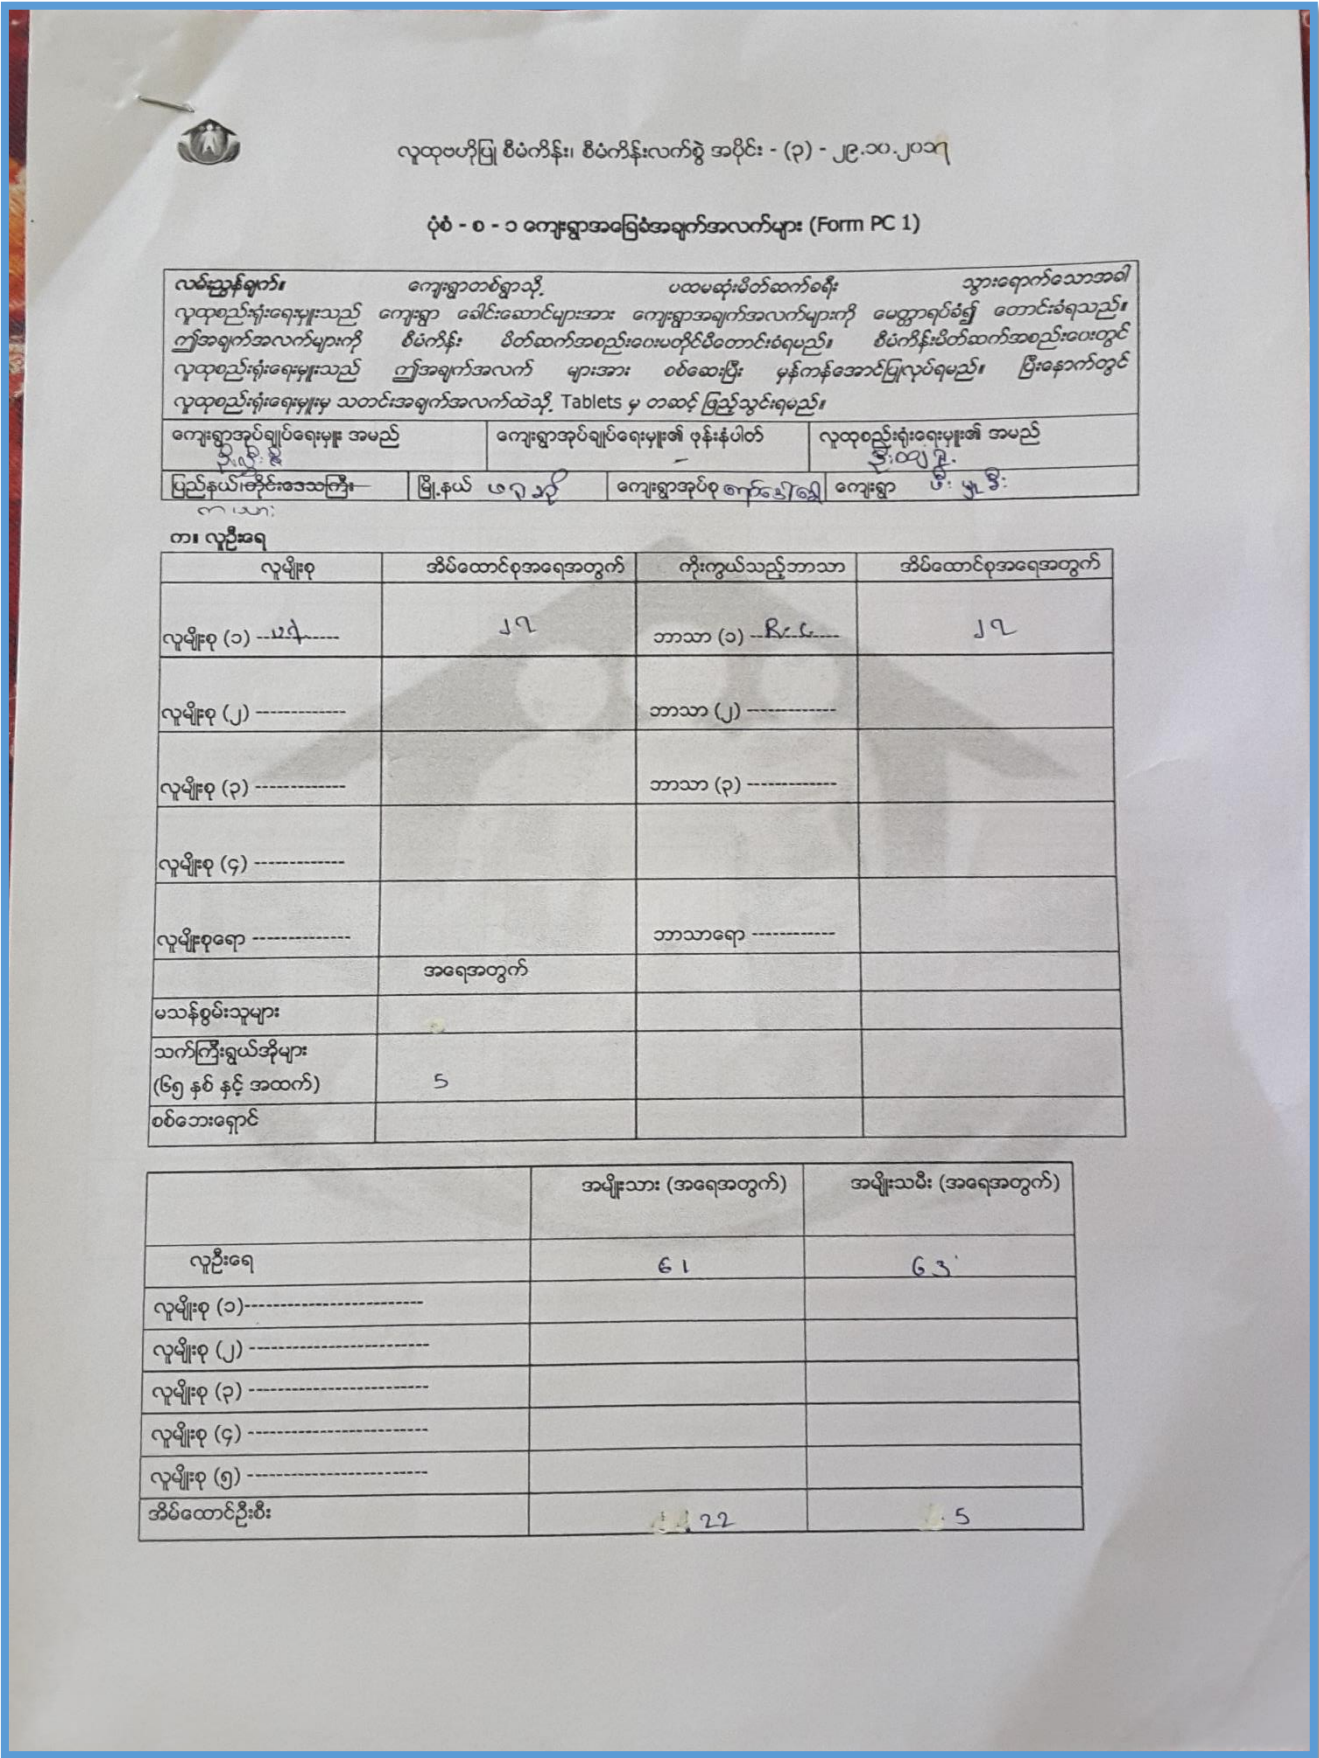 လူထုဗဟိုပြု စီမံကိန်း၊ စီမံကိန်းလက်စွဲ အပိုင်း - (၃) - ၂၉.၁၀.၂၀၁၇
ပုံစံ - စ - ၁ ကျေးရွာအခြေခံအချက်အလက်များ (Form PC 1)
လမ်းညွှန်ချက်။ ကျေးရွာတစ်ရွာသို့ ပထမဆုံးမိတ်ဆက်ခရီး သွားရောက်သောအခါ
လူထုစည်းရုံးရေးမှူးသည် ကျေးရွာ ခေါင်းဆောင်များအား ကျေးရွာအချက်အလက်များကို မေတ္တာရပ်ခံ၍ တောင်းခံရသည်။
ဤအချက်အလက်များကို စီမံကိန်း မိတ်ဆက်အစည်းဝေးမတိုင်မီတောင်းခံရမည်။ စီမံကိန်းမိတ်ဆက်အစည်းဝေးတွင်
လူထုစည်းရုံးရေးမှူးသည် ဤအချက်အလက် များအား စစ်ဆေးပြီး မှန်ကန်အောင်ပြုလုပ်ရမည်။ ပြီးနောက်တွင်
လူထုစည်းရုံးရေးမှူးမှ သတင်းအချက်အလက်ထဲသို့ Tablets မှ တဆင့် ဖြည့်သွင်းရမည်။
ကျေးရွာအုပ်ချုပ်ရေးမှူး အမည် ကျေးရွာအုပ်ချုပ်ရေးမှူး၏ ဖုန်းနံပါတ် လူထုစည်းရုံးရေးမှူး၏ အမည်
ပြည်နယ်/တိုင်းဒေသကြီး မြို့နယ် ဖရူဆို ကျေးရွာအုပ်စု ကျေးရွာ
ကယား
က။ လူဦးရေ
လူမျိုးစု အိမ်ထောင်စုအရေအတွက် ကိုးကွယ်သည့်ဘာသာ အိမ်ထောင်စုအရေအတွက်
လူမျိုးစု (၁) ၂၇ ဘာသာ (၁) R.C ၂၇
လူမျိုးစု (၂) ------------- ဘာသာ (၂) -------------
လူမျိုးစု (၃) ------------- ဘာသာ (၃) -------------
လူမျိုးစု (၄) -------------
လူမျိုးစုရော -------------- ဘာသာရော ------------
အရေအတွက်
မသန်စွမ်းသူများ
သက်ကြီးရွယ်အိုများ
(၆၅ နှစ် နှင့် အထက်) 5
စစ်ဘေးရှောင်
အမျိုးသား (အရေအတွက်) အမျိုးသမီး (အရေအတွက်)
လူဦးရေ 61 63
လူမျိုးစု (၁)-------------------------
လူမျိုးစု (၂) -------------------------
လူမျိုးစု (၃) -------------------------
လူမျိုးစု (၄) -------------------------
လူမျိုးစု (၅) -------------------------
အိမ်ထောင်ဦးစီး 22 5